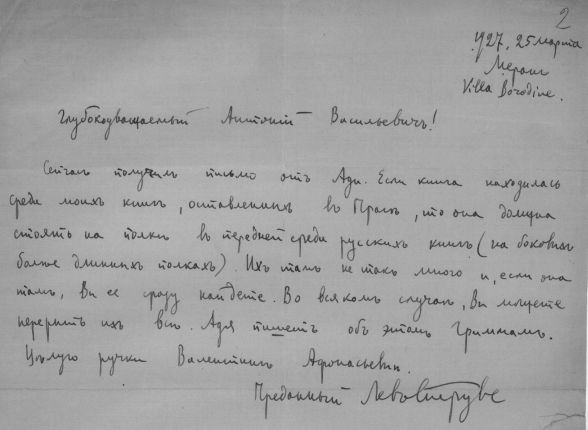 2
1927, 25 марта
Меран
Villa Borodine.
Глубокоуважаемый Антоній Васильевичъ!
Сейчасъ получилъ письмо отъ Ади. Если книга находилась
среди моихъ книгъ, оставленныхъ въ Прагѣ, то она должна
стоять на полкѣ въ передней среди русскихъ книгъ (на боковыхъ
болѣе длинныхъ полкахъ). Ихъ тамъ не такъ много и, если она
тамъ, Вы ее сразу найдете. Во всякомъ случаѣ, Вы можете
перерыть ихъ всѣ. Адя пишетъ объ этомъ Гриммамъ.
Цѣлую ручки Валентинѣ Афонасьевнѣ.
Преданный Левъ Струве